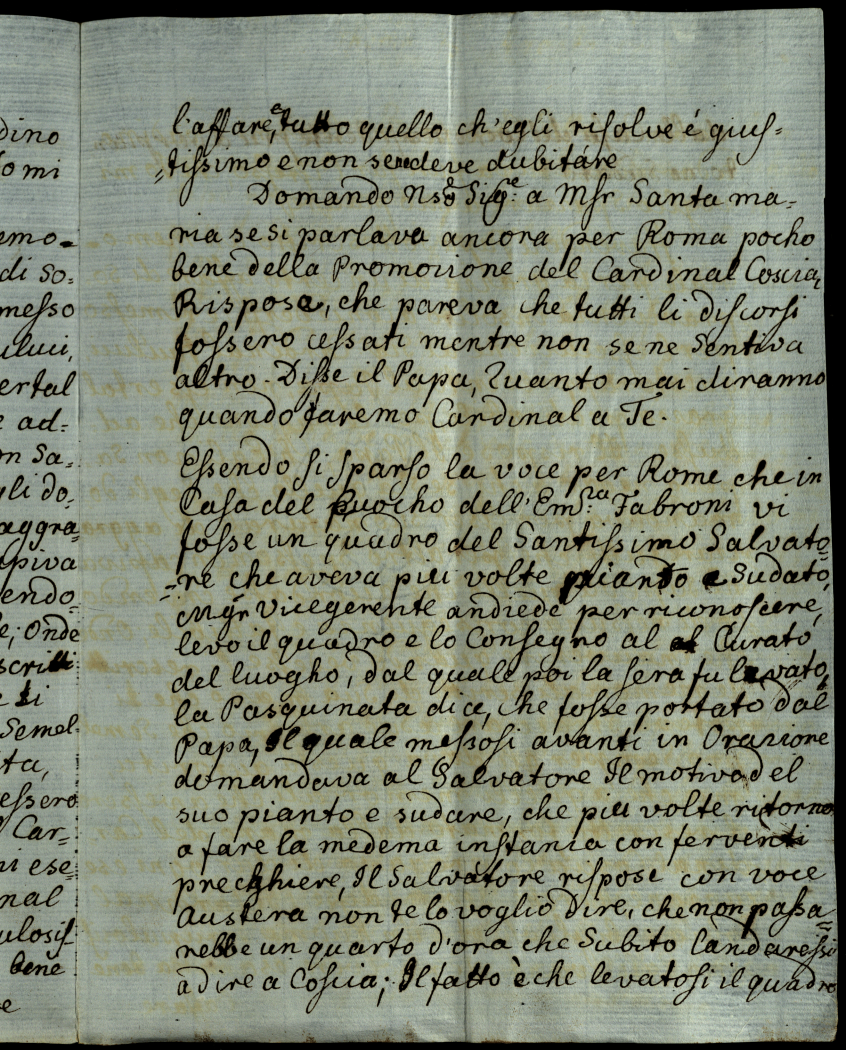 dino
o mi
emo=
di so=
messo
uluci,
ertal
e ad=
on Sa=
gli do=
aggra=
apiva
endo=
e, Onde
scritti
e si
Semel
ta,
essero
Car=
ni ese=
nal
ulosis
bene
e
l'affare, e tutto quello ch'egli risolve é gius=
=tissimo e non se ne deve dubitáre
Domando Nsõ Sigre a Msr Santa ma=
ria se si parlava ancora per Roma pocho
bene della Promozione del Cardinal Coscia,
Rispose, che pareva che tutti li discorsi
fossero cessati mentre non se ne Sentiva
altro. Disse il Papa, Quanto mai diranno
quando faremo Cardinal a Te.
Essendosi sparso la voce per Rome che in
Casa del Cuocho dell'Em.ca Fabroni vi
fosse un quadro del Santissimo Salvato=
=re che aveva più volte pianto e Sudato,
Mgr Vicegerente andiede per riconoscere,
levo il quadro e lo Consegno al Curato
del luogho, dal quale poi la sera fu levato,
la Pasquinata dice, che fosse portato dal
Papa, Il quale messosi avanti in Orazione
domandava al Salvatore Il motivo del
suo pianto e sudare, che più volte ritorno
a fare la medema instanza con ferventi
preghiere, Il Salvatore rispose con voce
Austera non te lo voglio dire, che non passa=
rebbe un quarto d'ora che Subito l'andaressi
a dire a Coscia; Il fatto è che levatosi il quadro